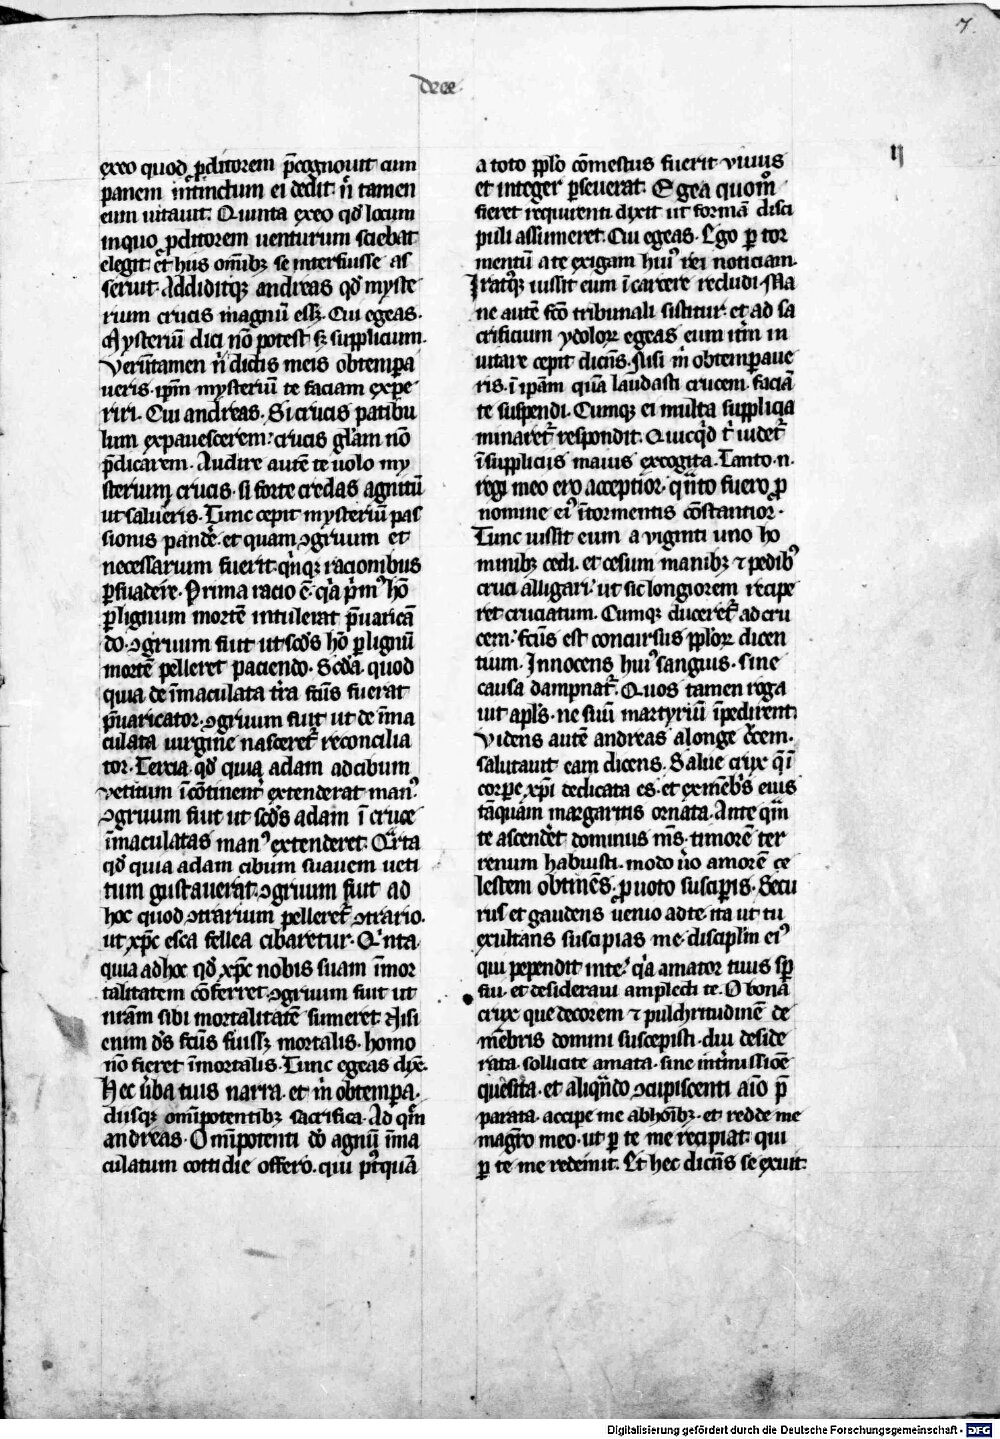 7.
dree
ij
exeo quod ꝓditorem p̄cognouit cum
panem ītinctum ei dedit. n̄ tamen
eum uitauit. Quinta exeo qd̓ locum
inquo ꝓditorem uenturum sciebat
elegit. et hiis omībꝫ se interfuisse as
seruit. Addiditqꝫ andreas qd̓ myste
rium crucis magnū essꝫ. Cui egeas.
Mysteriū dici nō potest sꝫ supplicium.
Verūtamen n̄ dictis meis obtempa
ueris. ipm̄ mysteriū te faciam expe
riri. Cui andreas. Si crucis patibu
lum expauescerem: crucis gl̓am nō
p̄dicarem. Audire autē te uolo my
sterium crucis. si forte credas agnitū
ut salueris. Tunc cepit mysteriū pas
sionis pande. et quam ꝯgruum et
necessarium fuerit. qinqꝫ racionibus
ꝑsuadere. Prima racio ē. qa prim̓ hō
ꝑ lignum mortē intulerat p̄uaricā
do. ꝯgruum fuit ut scd̓s hō ꝑ lignū
mortē pelleret paciendo. Scd̓a. quod
quia de īmaculata tra fc̄us fuerat
p̄uaricator. ꝯgruum fuit ut de īma
culata uirgine nasceret᷑ reconcilia
tor. Tercia. qd̓ quia adam ad cibum
vetitum īcōtinent᷑ extenderat man᷒
ꝯgruum fuit ut scd̓s adam ī cruce
īmaculatas man᷒ extenderet. Qrta
qd̓ quia adam cibum suauem ueti
tum gustauerat. ꝯgruum fuit ad
hoc quod ꝯtrarium pelleret᷑ ꝯtrario.
ut xp̄c esca fellea cibaretur. Qnta
quia ad hoc qd̓ xp̄c nobis suam īmor
talitatem cōferret. ꝯgruum fuit ut
nr̄am sibi mortalitatē sumeret. Nisi
enim d̄s fc̄us fuissꝫ mortalis. homo
nō fieret īmortalis. Tunc egeas dix̄.
Hec ūba tuis narra. et m̄ obtempa.
diisqꝫ omīpotentibꝫ sacrifica. Ad qm̄
andreas. Omīpotenti dō agnū īma
culatum cottidie offero. qui pt̓quā
a toto ppl̓o cōmestus fuerit viuus
et integer ꝑseuerat. Egea quom̊
fieret requirenti dixit ut formā disci
puli assumeret. Cui egeas. Ego ꝑ tor
mentū a te exigam hui᷒ rei noticiam.
Irat᷒qꝫ iussit eum ī carcere recludi. Ma
ne autē fc̄o tribunali sistitur. et ad sa
crificium ydoloꝝ egeas eum itm̄ in
uitare cepit dicēs. Nisi m̄ obtempaue
ris. ī ipam quā laudasti crucem faciā
te suspendi. Cumqꝫ ei multa supplicia
minaret᷑ respondit. Quicqd t̄ uidet᷑
ī suppliciis maius excogita. Tanto .n.
regi meo ero acceptior. qnto fuero ꝓ
nomine ei᷒ ītormentis cōstantior.
Tunc iussit eum a viginti uno ho
minibꝫ cedi. et cesum manibꝫ ⁊ pedib᷒
cruci alligari. ut sic longiorem recipe
ret cruciatum. Cumqꝫ duceret᷑ ad cru
cem: fc̄us est concursus pploꝝ dicen
tium. Innocens hui᷒ sanguis. sine
causa dampnat᷑. Quos tamen roga
uit apl̓s. ne suū martyriū īpedirent.
Videns autē andreas a longe c̄cem.
salutauit eam dicens. Salue crux q̄ ī
corpe xp̄i dedicata es. et ex mēbs̓ eius
tāquam margaritis ornata. Ante qm̄
te ascendet dominus m̄s. timorē ter
renum habuisti. modo u̓o amorē ce
lestem obtinēs. ꝓ uoto susciperis. Secu
rus et gaudens uenio ad te. ita ut tu
exultans suscipias me discipl̓m ei᷒
qui pependit in te: qa amator tuus sp̄
fui. et desideraui amplecti te. O bona
crux que decorem ⁊ pulchritudinē de
mēbris domini suscepisti. diu deside
rata. sollicite amata. sine intmissiōe
quesita. et aliqndo ꝯcupiscenti aīo p̄
parata. accipe me ab hōibꝫ. et redde me
magr̄o meo. ut ꝑ te me recipiat. qui
ꝑ te me redemit. Et hec dicēs se exuit.
Digitalisierung gefördert durch die Deutsche Forschungsgemeinschaft - DFG